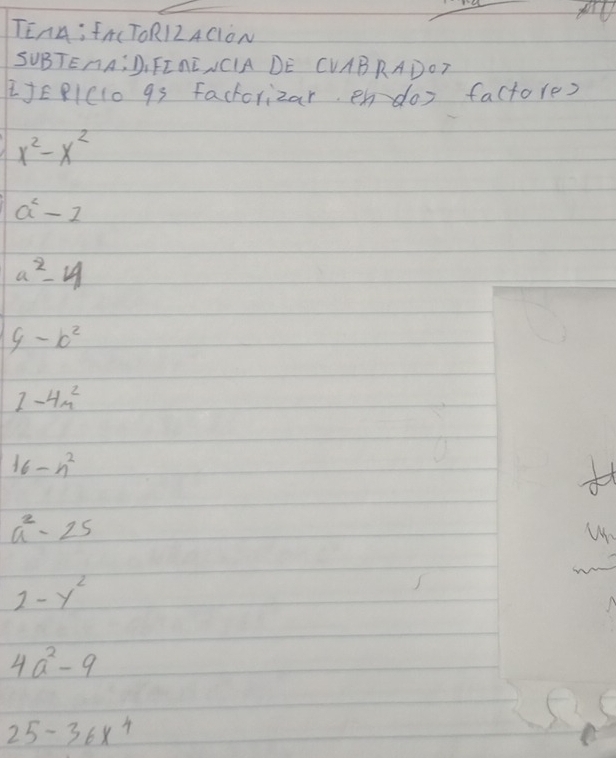 TEMA: FACTORIZACION
SUBTEMA: DIFERENCIA DE CUADRADOS
EJERICIO 93 Factorizar en dos factores
x² - x²
a² - 1
a² - 4
9 - b²
1 - 4m²
16 - n²
a² - 25
1 - y²
4a² - 9
25 - 36x⁴